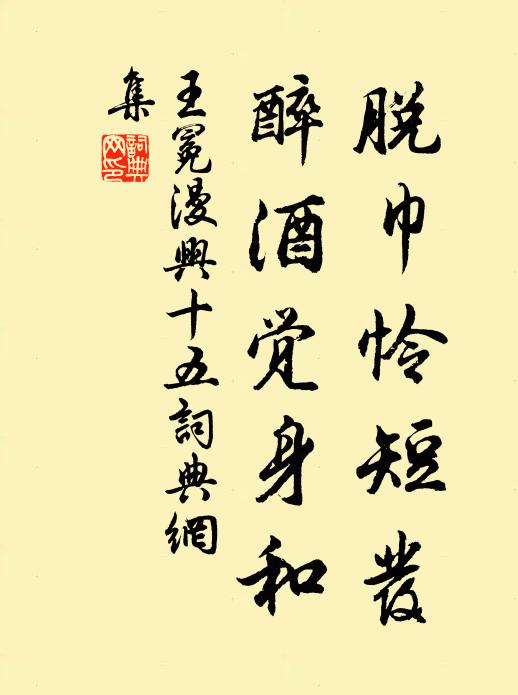 脱巾怜短發
醉酒觉身和
王冕漫興十五詞典網
集
詞典
网印